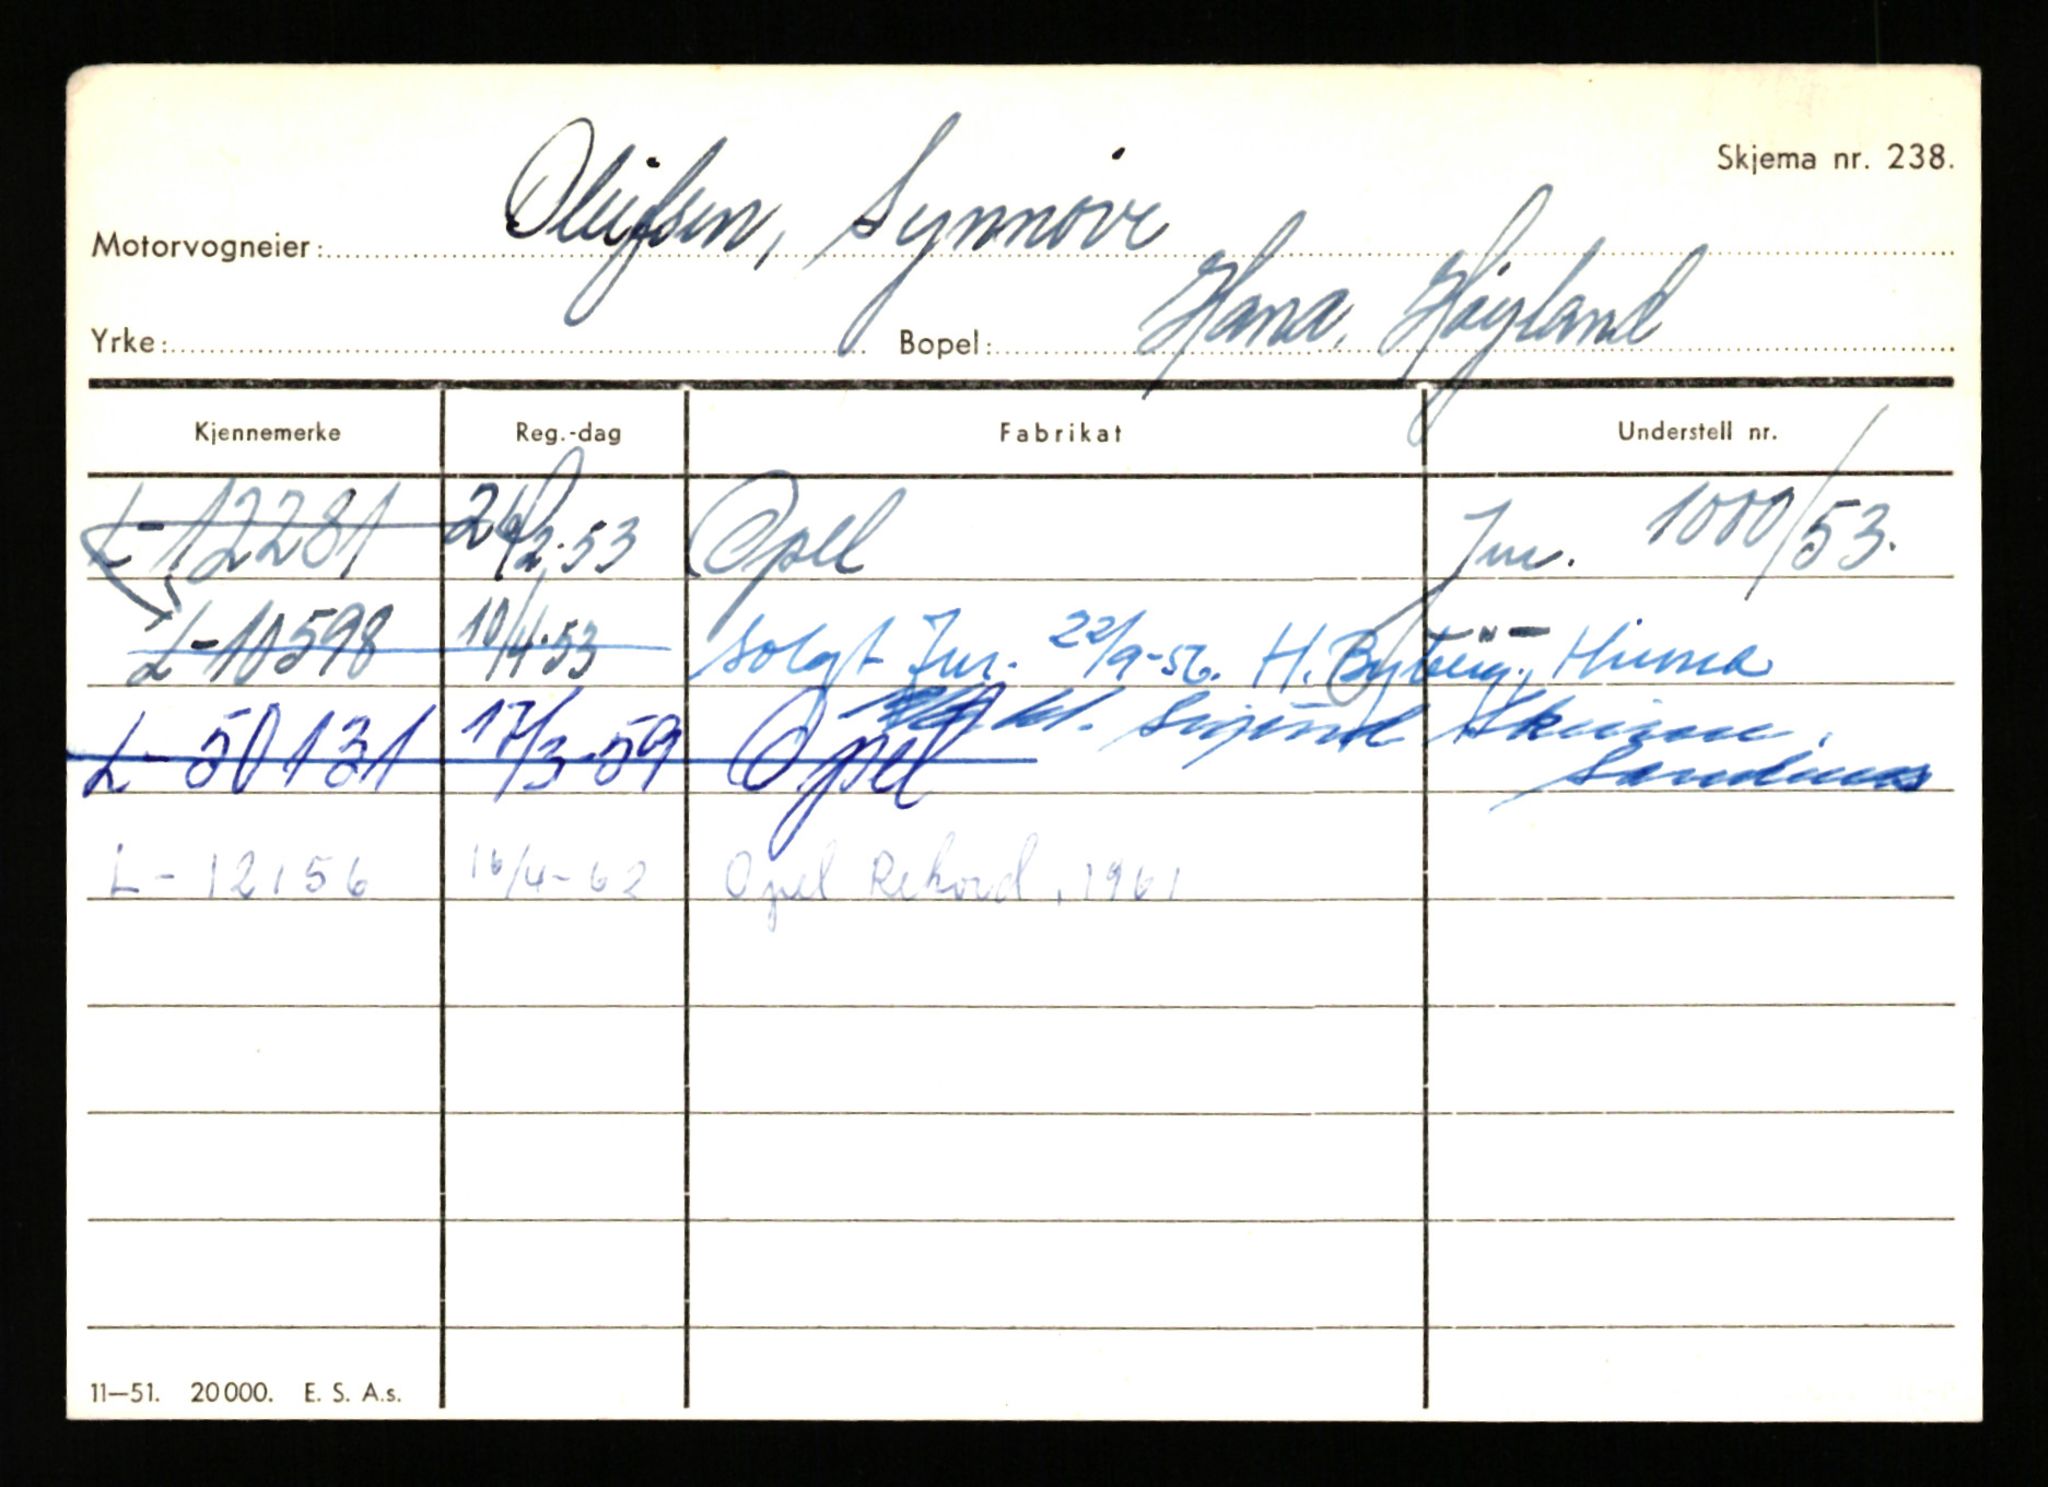 Skjema nr. 238.
Motorvogneier: Olufsen, Synnøve
Yrke: Bopel: Hana, Høyland
Kjennemerke Reg.-dag Fabrikat Understell nr.
L-12281 /2.53 Opel Jnr. 1000/53.
L-10598 10/4.53 solgt Jnr. 22/9-56. H. Byberg, Hinna
L-50131 17/3-59 Opel
L-12156 16/4-62 Opel Rekord, 1961
11-51. 20000. E. S. A.s.